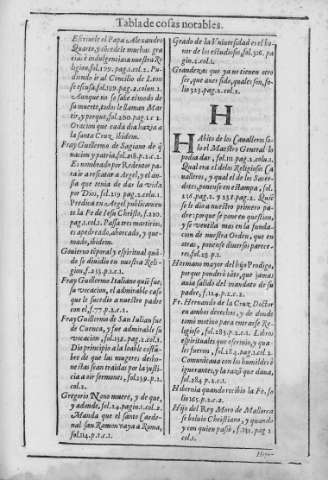 Tabla de cosas notables.
Escriuele el Papa Alexandro
Quarto, y ofrecele muchas gra-
cias e indulgencias a nuestra Re
ligion, fol.179. pag.1. col.2. Pu-
diendo ir al Concilio de Leon
se escusa, fol.179. pag.2. colun.1.
Aunque no se sabe el modo de
su muerte, todos le llaman Mar
tir, y porque, fol.180. pag.1. c.2.
Oracion que cada dia hazia a
la santa Cruz, ibidem.
Fray Guillermo de Sagiano de q̃
nacion y patria, fol.218. p.2. c.2.
Es nombrado por Redentor pa-
ra ir a rescatar a Argel, y el an-
sia que tenia de dar la vida
por Dios, fol.219. pag.1. col.1.
Predica en Argel publicamen
te la Fe de Iesu Christo, f.220.
pag.1. col.1. Passa tres martirios,
es apedreado, ahorcado, y que-
mado, ibidem.
Gouierno tẽporal y espiritual quã-
do se diuidio en nuestra Reli-
gion, f.233. p.2. c.1.
Fray Guillermo Italiano quiẽ fue,
su vocacion, el admirable caso
que le sucedio a nuestro padre
con el, f.77. p.2. c.1.
Fray Guillermo de San Iulian fue
de Cuenca, y fue admirable su
vocacion, fol.138. pag.2. col.1.
Dio principio a la loable costũ-
bre de que las mugeres delin-
quentes sean traidas por la justi-
cia a oir sermones, fol.139. p.1.
col.2.
Gregorio Nono muere, y de que,
y adonde, fol.24. pagin.1. col.2.
Manda que el santo Carde-
nal san Ramon vaya a Roma,
fol.24. p.1. c.1.
Grado de la Vniuersidad es el ho-
nor de los estudiosos, fol.316. pa
gin.2. col.1.
Grandezas que ya no tienen otro
ser, que auer sido, quales son, fo-
lio 323. pag.2. col.1.
H
HAbito de los Caualleros so-
lo el Maestro General lo
podia dar, fol.111. pag.1. col.1.
Qual era el de los Religiosos Ca
ualleros, y qual el de los Sacer-
dotes, ponense en estampa, fol.
226. pag.2. y 231. pag.2. Quiẽ
se le dio a nuestro primero pa-
dre: porque se pone en question,
y se ventila mas en la funda-
cion de nuestra Orden, que en
otras, ponense diuersos parece-
res, fol.28. p.2.
Hermano mayor del hijo Prodigo,
porque ponderò tãto, que jamas
auia salido del mandato de su
padre, f.124. p.2. c.2.
Fr. Hernando de la Cruz Doctor
en ambos derechos, y de donde
tomò motiuo para entrarse Re-
ligioso, fol.283. p.2. c.2. Libro
espirituales que escriuio, y qua-
les fueron, fol.284. pag.1. col.2.
Comunicaua con los humildes e
ignorantes, y la razõ que daua,
fol.284. p.2. c.1.
Hibernia quando recibio la Fe, fo-
lio 165. p.2. c.2.
Hijo del Rey Moro de Mallorca
se boluio Christiano, y quando
y en quien passò, f.231. pag.2
col.1.
Hijo-